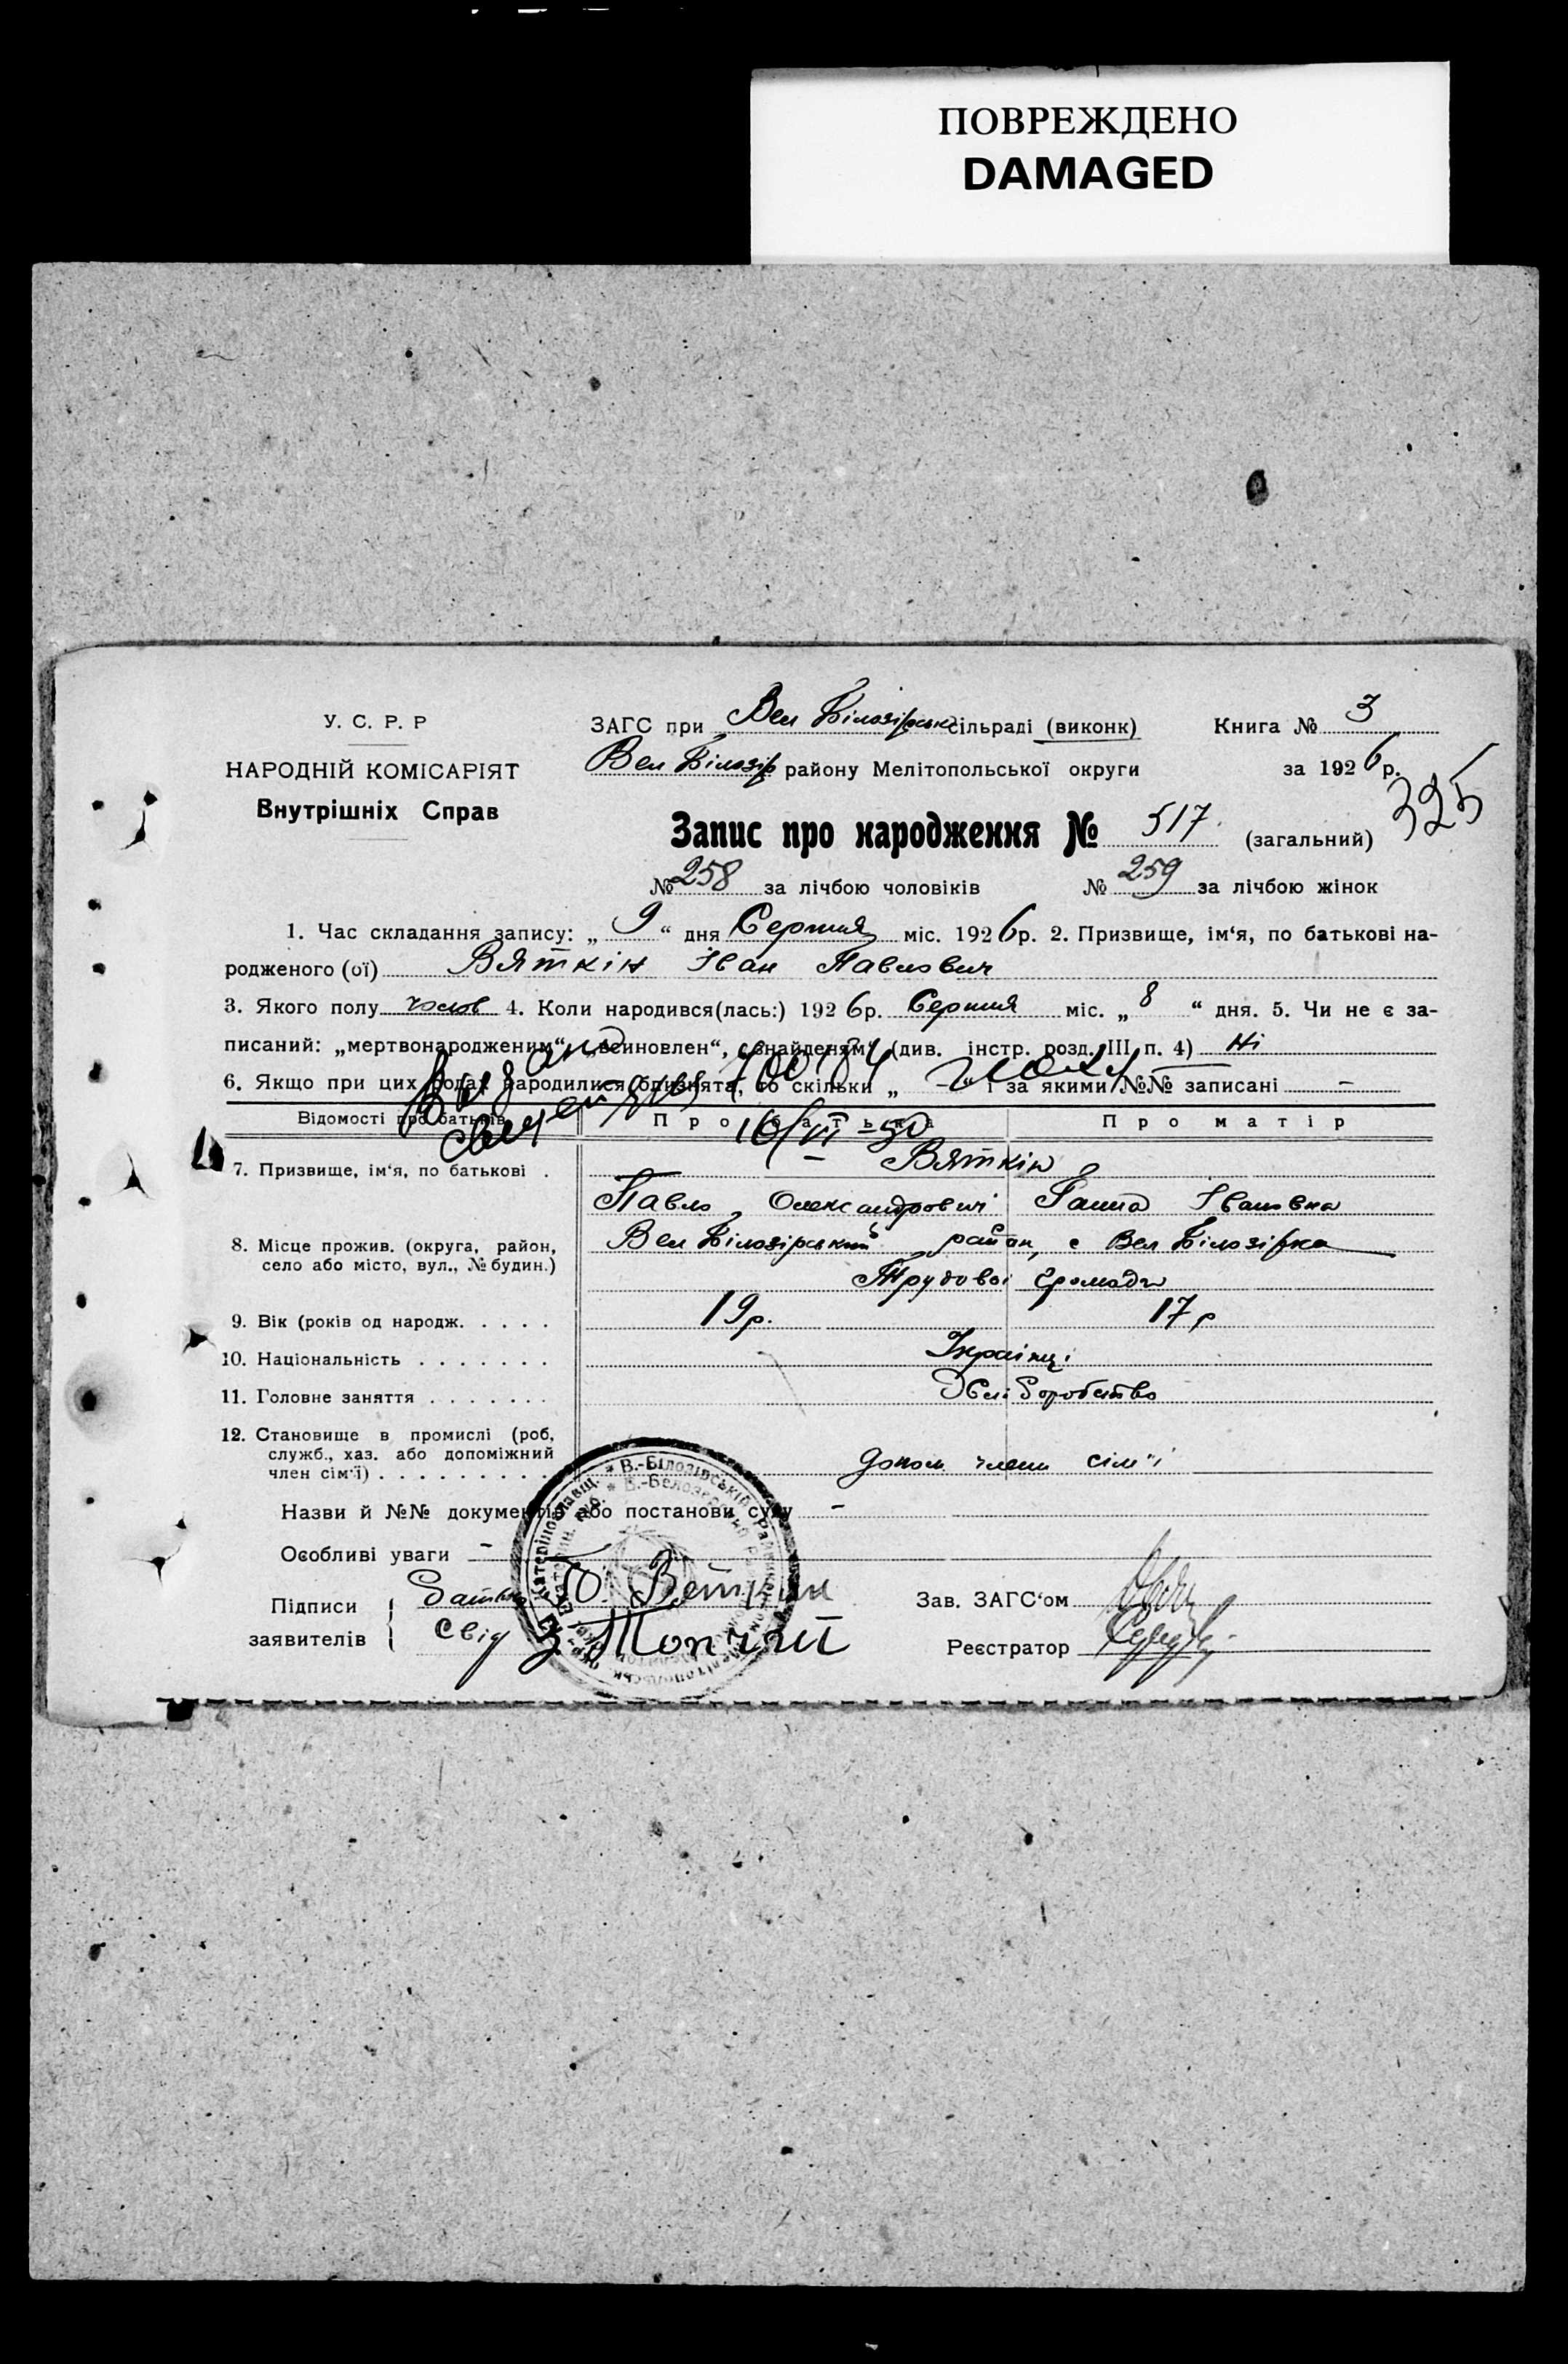 ПОВРЕЖДЕНО
DAMAGED
У. С. Р. Р
НАРОДНІЙ КОМІСАРІЯТ
Внутрішніх Справ
ЗАГС при Вел Білозірськ сільраді (виконк) Книга № 3
Вел Білозір району Мелітопольської округи за 1926р.
325
Запис про народження № 517. (загальний)
№ 258 за лічбою чоловіків № 259 за лічбою жінок
1. Час складання запису: „ 9 “ дня Серпня міс. 1926р. 2. Призвище, ім‘я, по батькові на-
родженого (ої) Вяткін Іван Павлович
3. Якого полу чолов 4. Коли народився(лась:) 1926р. Серпня міс. „ 8 “ дня. 5. Чи не є за-
писаний: „мертвонародженим“, „всиновлен“, „знайденям“ (див. інстр. розд. III п. 4) Ні
6. Якщо при цих родах народилися близнята, то скільки „ – “ і за якими №№ записані –
Відомості про батьків Про батька Про матір
16/VI – 50
7. Призвище, ім‘я, по батькові . Вяткін
Павло Олександрович Ганна Івановна
8. Місце прожив. (округа, район, Вел Білозірський район, с Вел Білозірка
село або місто, вул., № будин.) Трудової Громади
9. Вік (років од народж. . . . . 19р. 17р
10. Національність . . . . . . . Українці
11. Головне заняття . . . . . . . Хліборобство
12. Становище в промислі (роб,
служб., хаз. або допоміжний допом. члени сім'ї
член сім‘ї) . . . . . . . . .
Назви й №№ документів або постанови суду –
Особливі уваги –
Підписи заявителів { Батько Вяткин Зав. ЗАГС‘ом
Свід Топчий Реєстратор